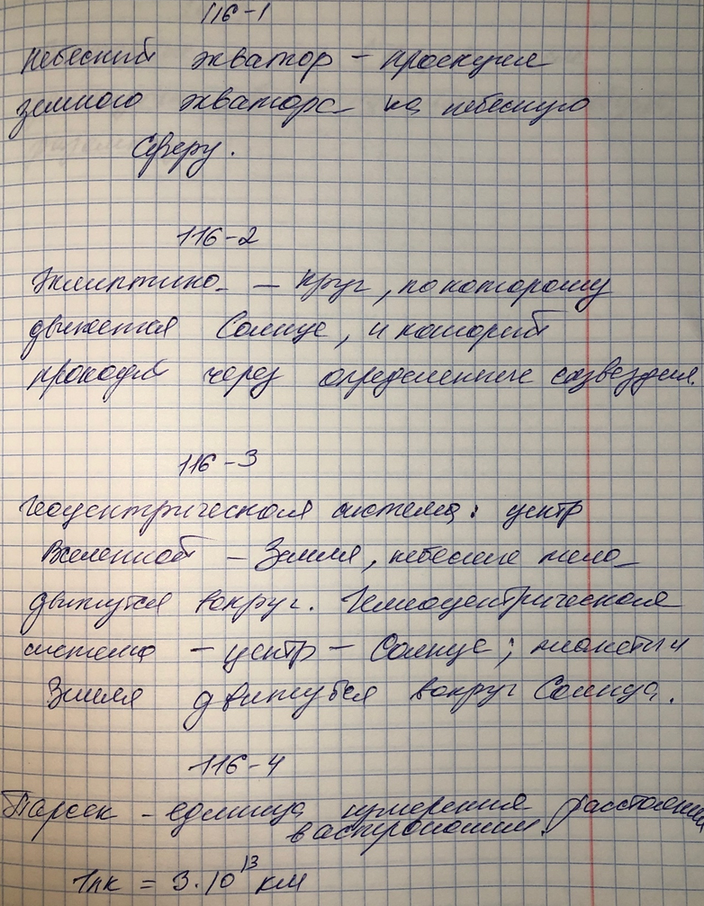 116-1
Небесный экватор – проекция
земного экватора на небесную
сферу.
116-2
Эклиптика – круг, по которому
движется Солнце, и который
проходит через определенные созвездия.
116-3
Геоцентрическая система: центр
Вселенной – Земля, небесные тела
движутся вокруг. Гелиоцентрическая
система – центр – Солнце; планеты и
Земля движутся вокруг Солнца.
116-4
Парсек – единица измерения расстояний
в астрономии.
1пк = 3·10¹³ км